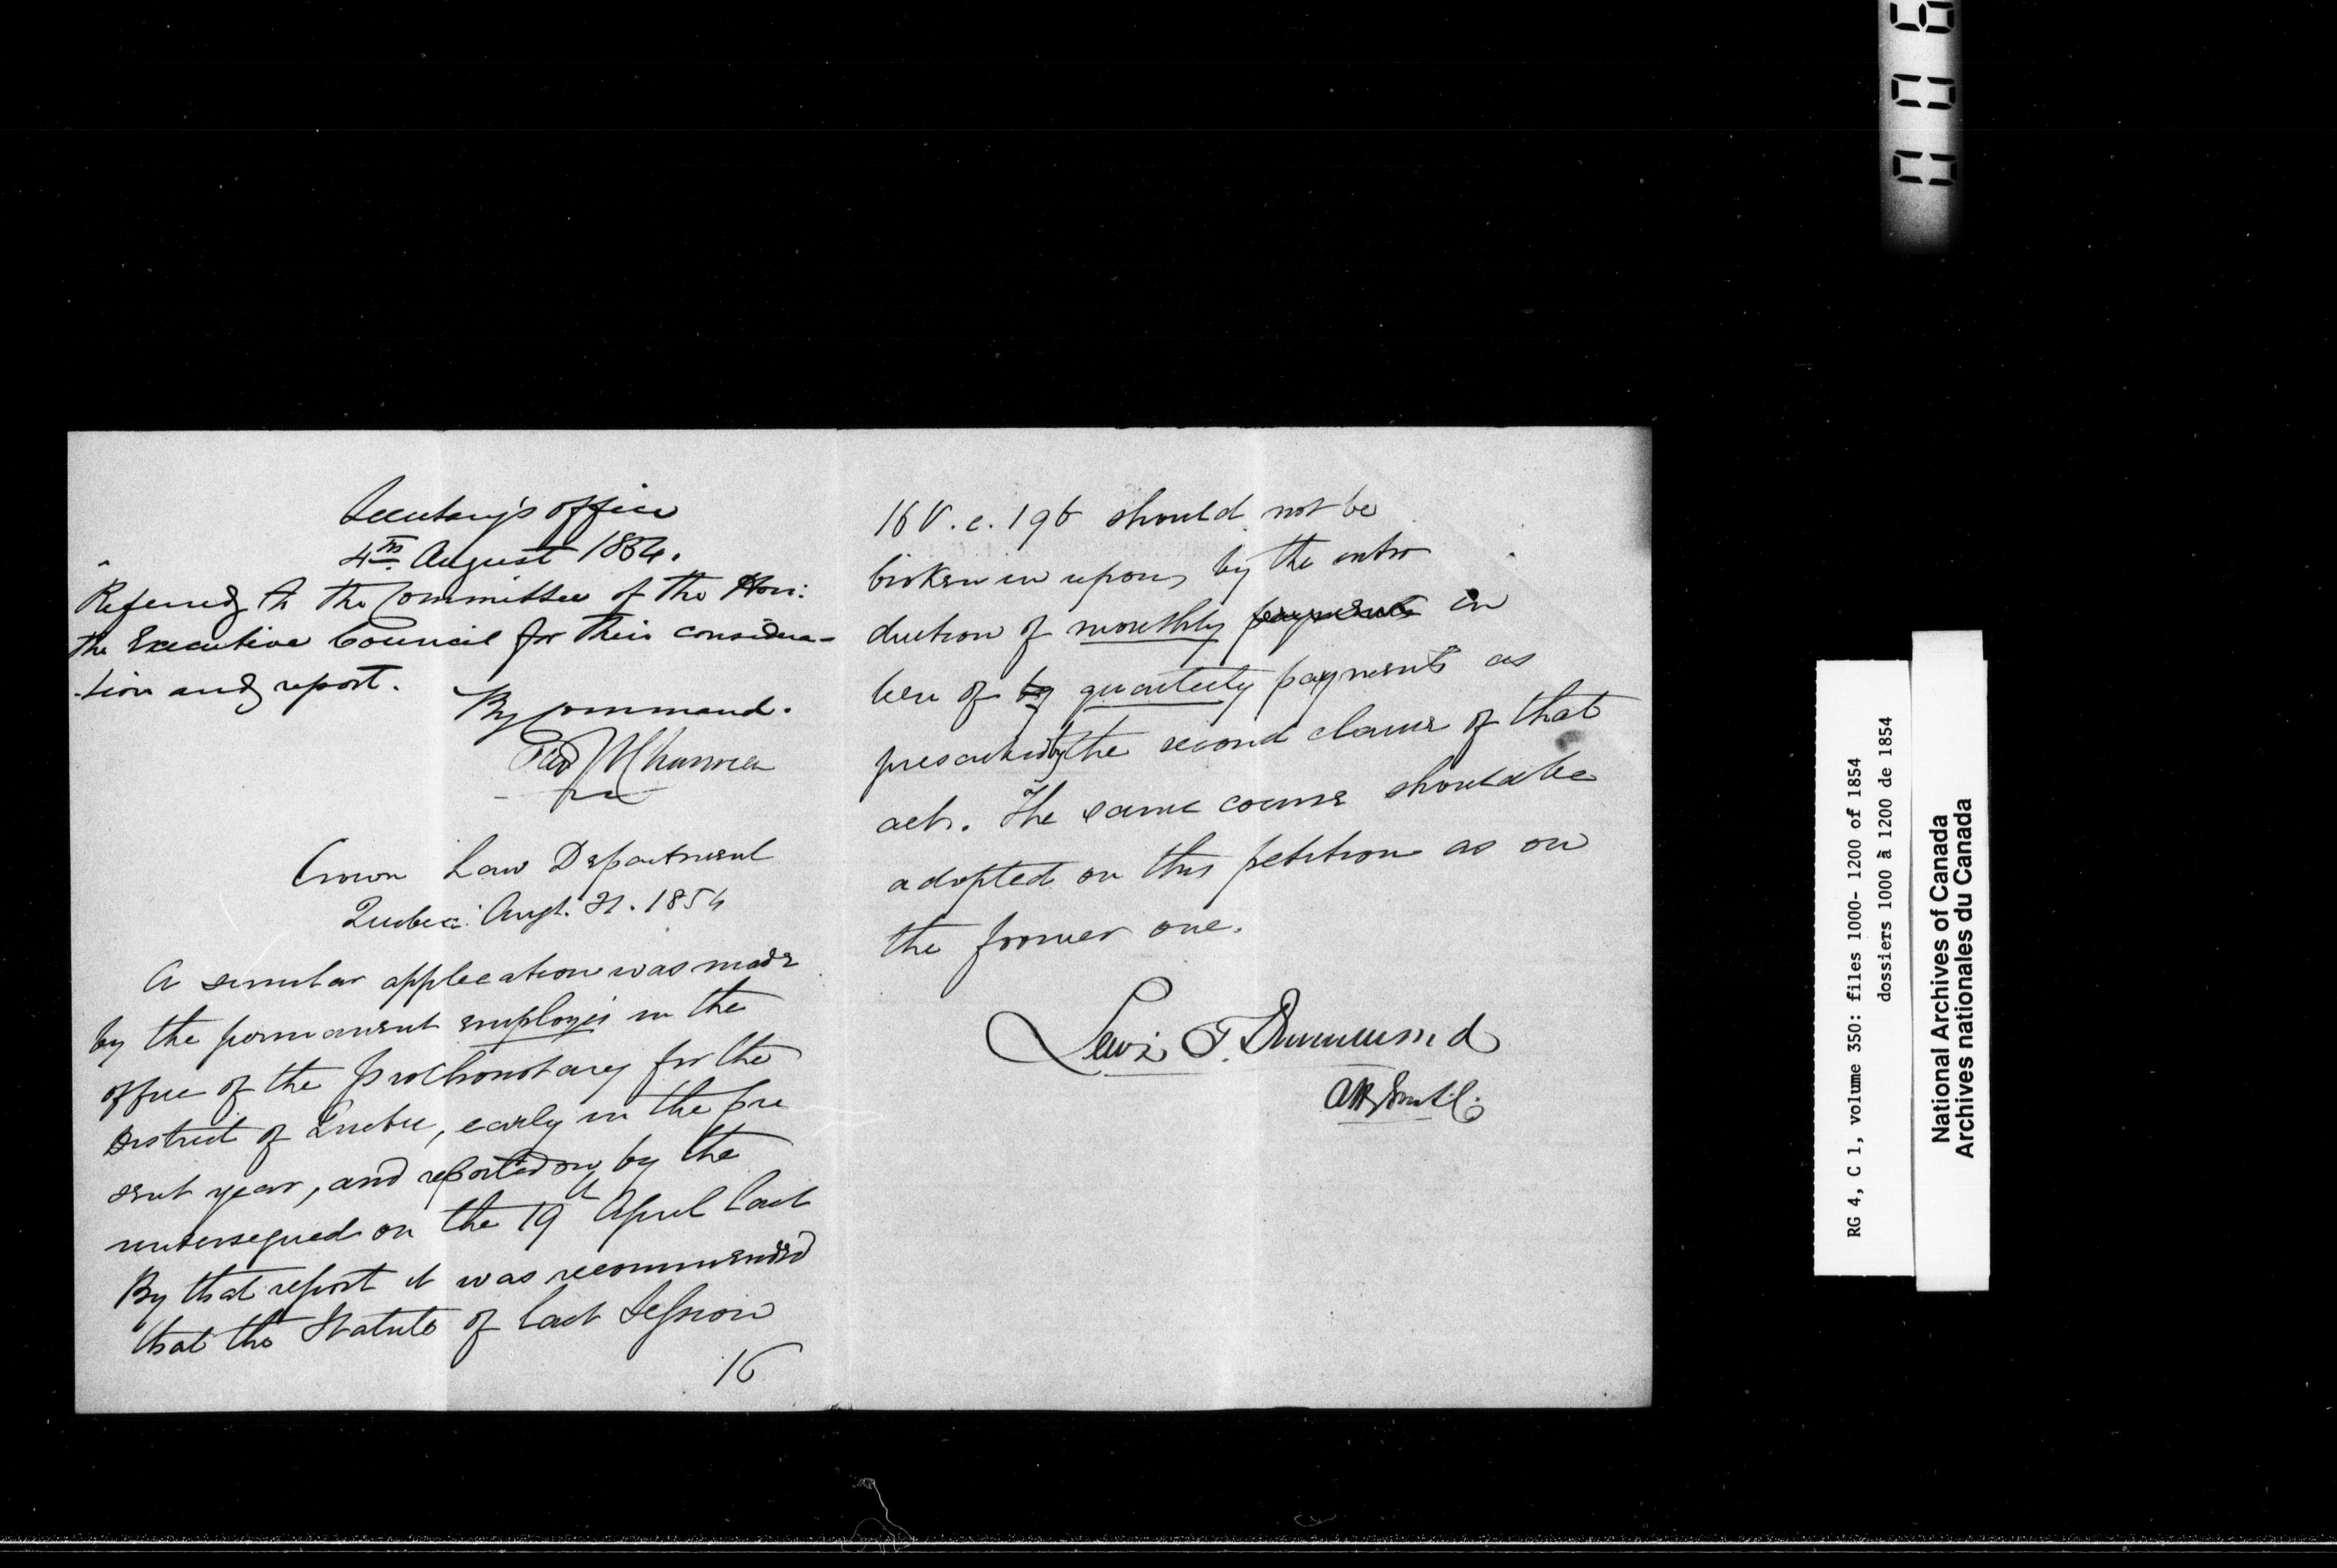 Secretary's office
4th August 1854.
Referred to the Committee of the Hon:
the Executive Council for their considera-
-tion and report.
By Command.
Crown Law Department
Quebec: Augt. 21. 1854
A similar application was made
by the permanent employés in the
office of the Prothonotary for the
District of Quebec, early in the pre
sent year, and reported on, by the
undersigned on the 19th April last
By that report it was recommended
that the Statute of last Session
16
16 V. c. 196 should not be
broken in upon, by the intro
duction of monthly payments in
lieu of by quarterly payments as
prescribed by the second clause of that
act. The same course should be
adopted on this petition as on
the former one.
Lewis T. Drummond
RG 4, C 1, volume 350: files 1000- 1200 of 1854
dossiers 1000 à 1200 de 1854
National Archives of Canada
Archives nationales du Canada